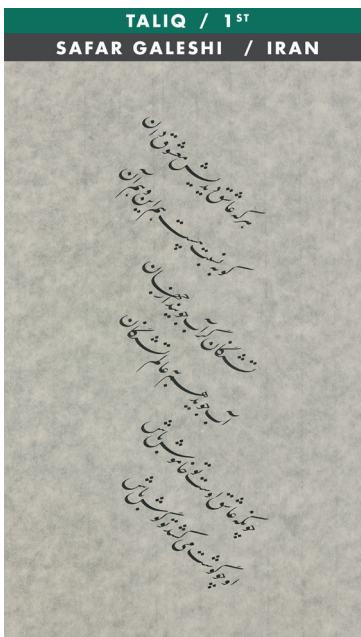 TALIQ / 1ST
SAFAR GALESHI / IRAN
هرکه عاشق دیدیش معشوق دان
کو به نسبت هست هم این و هم آن
تشنگان گر آب جویند از جهان
آب جوید هم به عالم تشنگان
چونکه عاشق اوست تو خاموش باش
او چو گوشت می‌کشد تو گوش باش